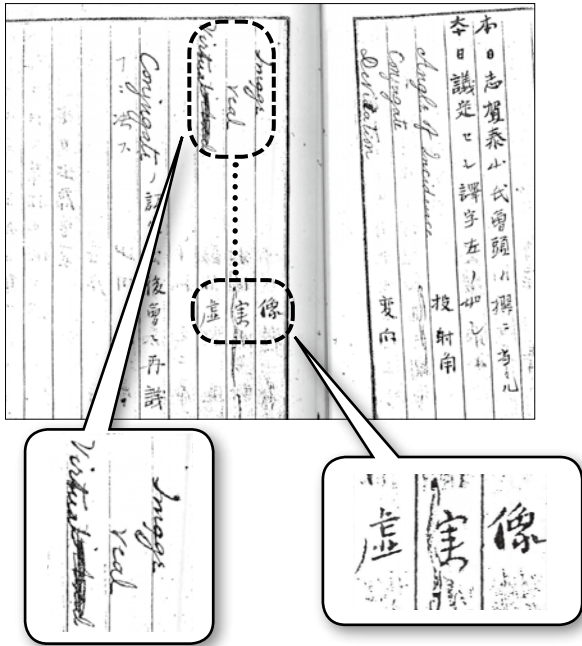 本日志賀泰山氏會頭
本日議定セシ譯字左ノ如シ
Angle of Incidence 投射角
Conjugate
Deviation 変向
Image 像
real 実
Virtual 虚
Conjugate ノ 後會 再議
Image
real
Virtual
像
実
虚